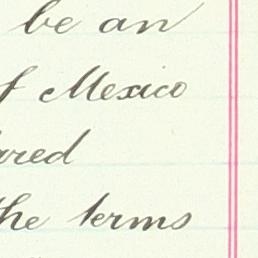 be an
f Mexico
ared
the terms